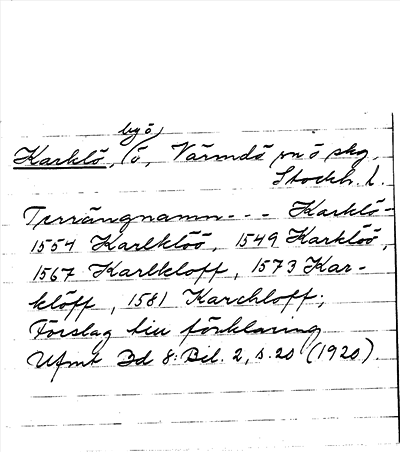 by ö,
Karklö, /ö, Värmdö sn ö skg,
Stockh. l.
Terrängnamn - - - Karklö-
1554 Karlklöö, 1549 Karklöö,
1567 Karlkloff, 1573 Kar-
klöff, 1581 Karchloff;
Förslag till förklaring
Ufmt Bd 8: Bil. 2, s. 20 (1920).